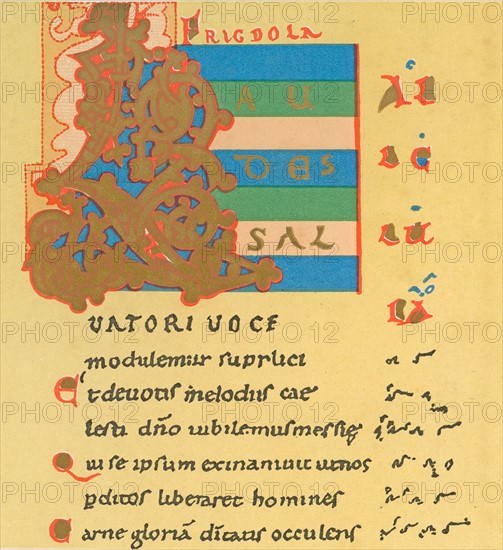 FRIGDOLA
LAU
DES
SAL
UATORI UOCE
modulemur supplici
Et deuotis melodiis cae
lesti dño iubilemus messię
Qui se ipsum exinaniuit ut nos
ꝑditos liberaret homines
Carne gloriā diītatis occulens
PHOTO12